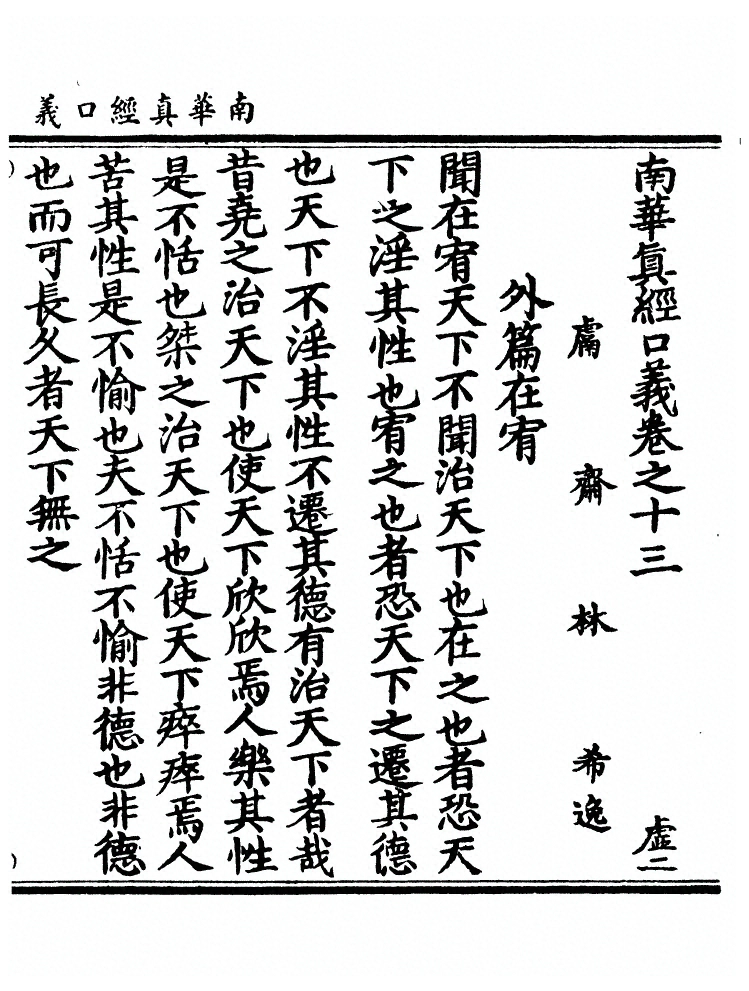 南華真經口義
南華真經口義卷之十三
虛二
鬳齋林希逸
外篇在宥
聞在宥天下不聞治天下也在之也者恐天
下之淫其性也宥之也者恐天下之遷其德
也天下不淫其性不遷其德有治天下者哉
昔堯之治天下也使天下欣欣焉人樂其性
是不恬也桀之治天下也使天下瘁瘁焉人
苦其性是不愉也夫不恬不愉非德也非德
也而可長久者天下無之